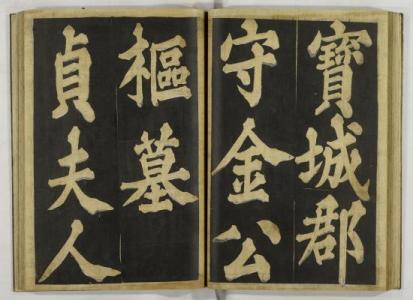 寶城郡
守金公
樞墓
貞夫人